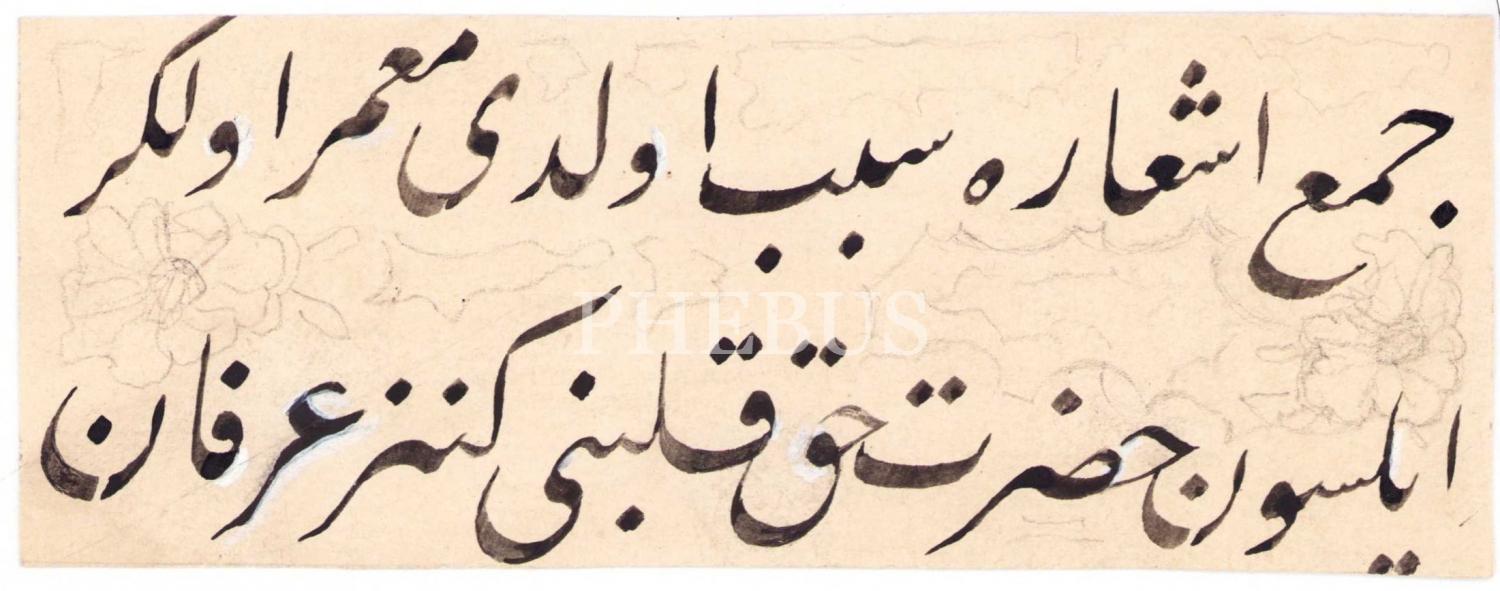 جمع اشعاره سبب اولدی معمر اولکز
PHEBUS
ایلسون حضرت حق قلبنی کنز عرفان